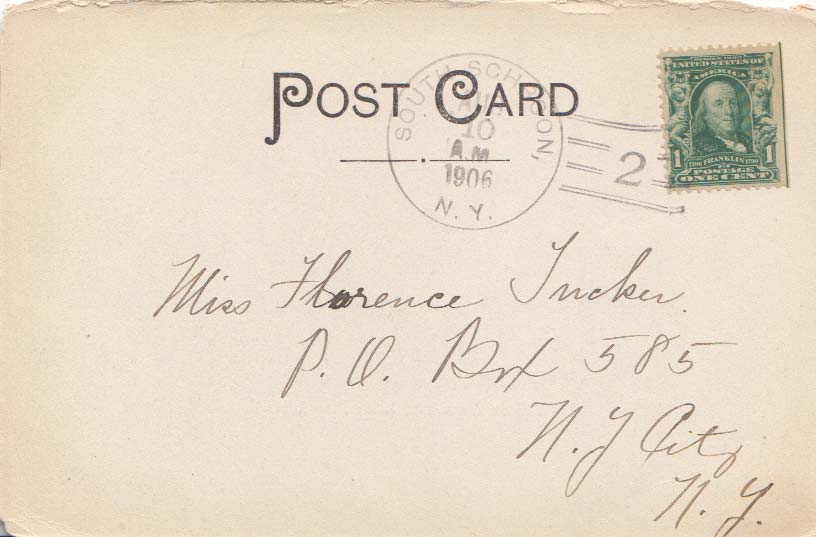 POST CARD
SOUTH SCHODON,
10
A.M
1906
N. Y.
2
SERIES 1902
UNITED STATES OF
AMERICA
1 1706 FRANKLIN 1790
POSTAGE
ONE CENT
Miss Florence Tucker.
P. O. Box 585
N. Y City
N. Y.